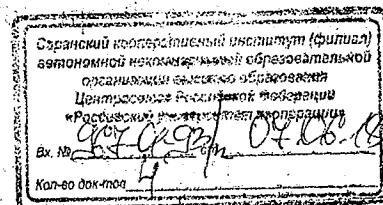 Саранский кооперативный институт (филиал)
автономной некоммерческой образовательной
организации высшего образования
Центросоюза Российской Федерации
«Российский университет кооперации»
Вх. № 07.06.18
Кол-во док-тов 4